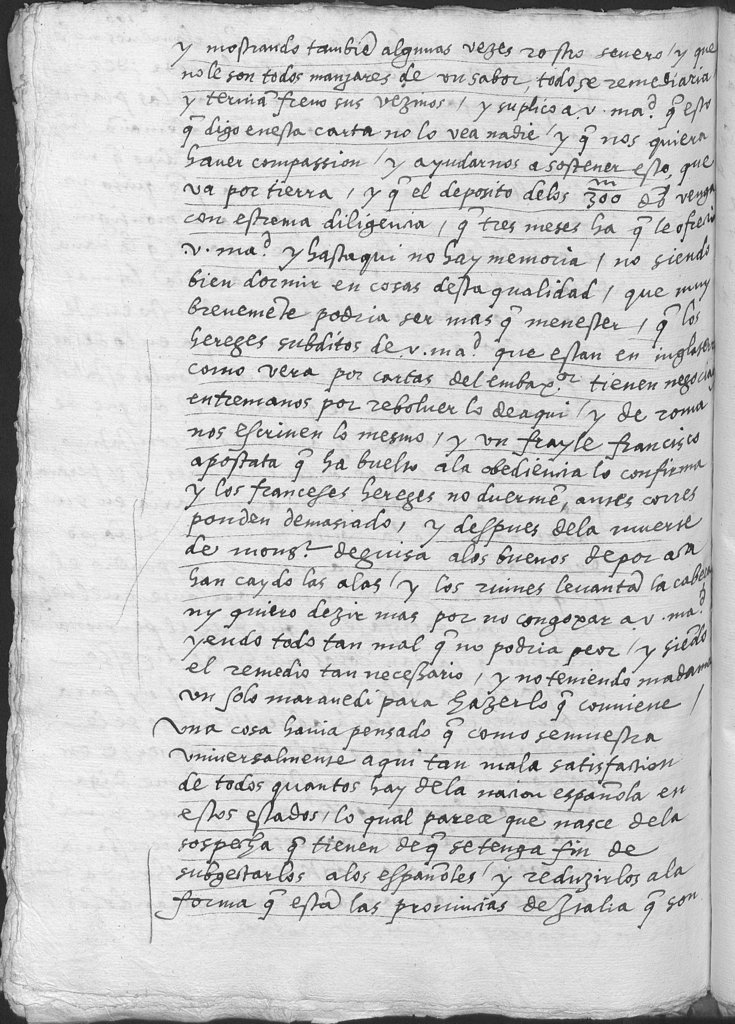 y mostrando tambiē algunas vezes rostro severo / y que
no le son todos manjares de un sabor, todo se remediaria
y terniā freno sus vezinos / y suplico a .v. ma.d q̄ esto
q̄ digo en esta carta no lo vea nadie / y q̄ nos quiera
haver compassion / y ayudarnos a sostener esto, que
va por tierra / y q̄ el deposito delos 300 m d.os venga
con estrema diligencia, q̄ tres meses ha q̄ le ofrecio
v. ma.d y hasta qui no hay memoria / no siendo
bien dormir en cosas desta qualidad / que muy
brevemēte podria ser mas q̄ menester, q̄ los
hereges subditos de .v. ma.d que estan en inglaterra
como vera por cartas del embax.or tienen negocia
entremanos por rebolver lo deaqui / y de roma
nos escriven lo mesmo, y un frayle francisco
apostata q̄ ha buelto ala obediencia lo confirma
y los franceses hereges no duermē, antes corres
ponden demasiado, y despues dela muerte
de mons.r deguisa alos buenos depor aca
han caydo las alas / y los ruines levantā la cabeça
ny quiero dezir mas por no congoxar a v. ma.d
yendo todo tan mal q̄ no podria peor / y siēdo
el remedio tan necessario, y no teniendo madama
un solo maravedi para hazer lo q̄ conviene /
Una cosa havia pensado q̄ como se muestra
universalmente aqui tan mala satisfacion
de todos quantos hay dela nacion española en
estos estados, lo qual parece que nasce dela
sospecha q̄ tienen de q̄ se tenga fin de
subgectarlos alos españoles / y reduzirlos ala
forma q̄ estā las provincias de Italia q̄ son